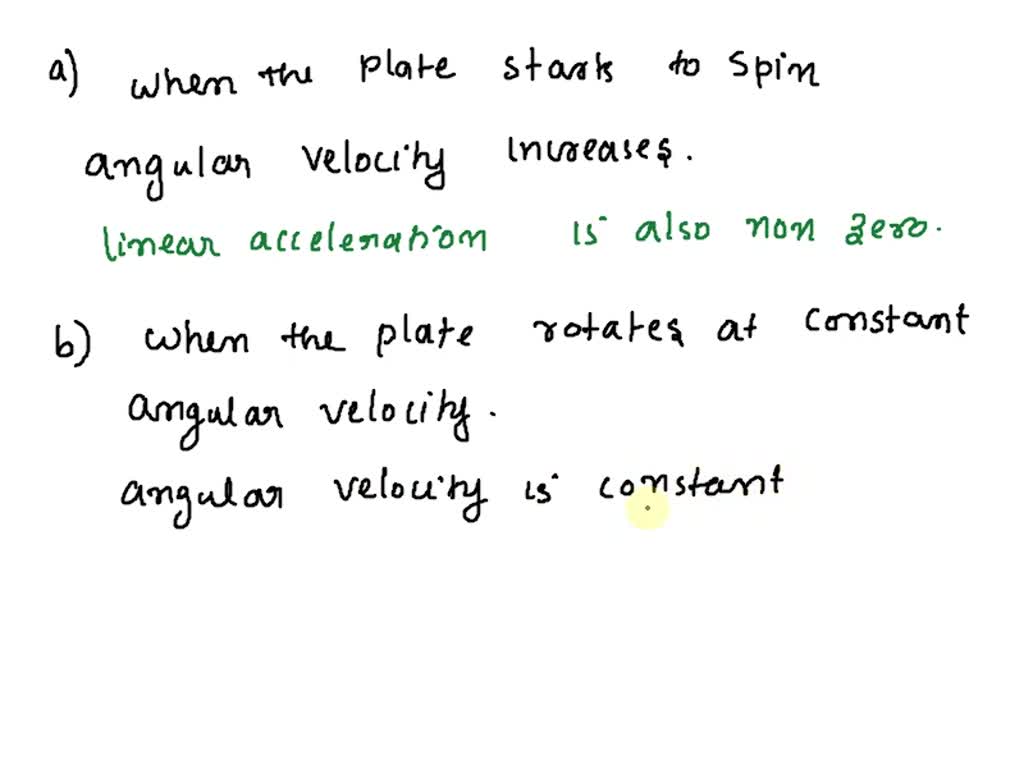 a) when the plate starts to spin
angular velocity increases.
linear acceleration is also non zero.
b) when the plate rotates at constant
angular velocity.
angular velocity is constant